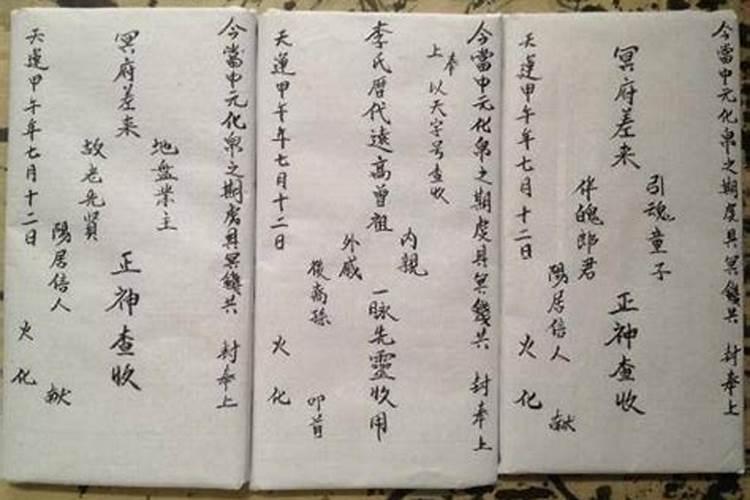 今當中元化帛之期虔具冥錢共 封奉上
引魂童子
冥府差来 正神查收
伴魄郎君
陽居信人 献
天運甲午年七月十二日 火化
今當中元化帛之期虔具冥錢共 封奉上
奉
上 以天字号查收
内親
李氏暦代遠高曾祖 一脉先靈收用
外戚
後裔孫 叩首
天運甲午年七月十二日 火化
今當中元化帛之期虔具冥錢共 封奉上
地盤業主
冥府差来 正神查收
故老先賢
陽居信人 献
天運甲午年七月十二日 火化